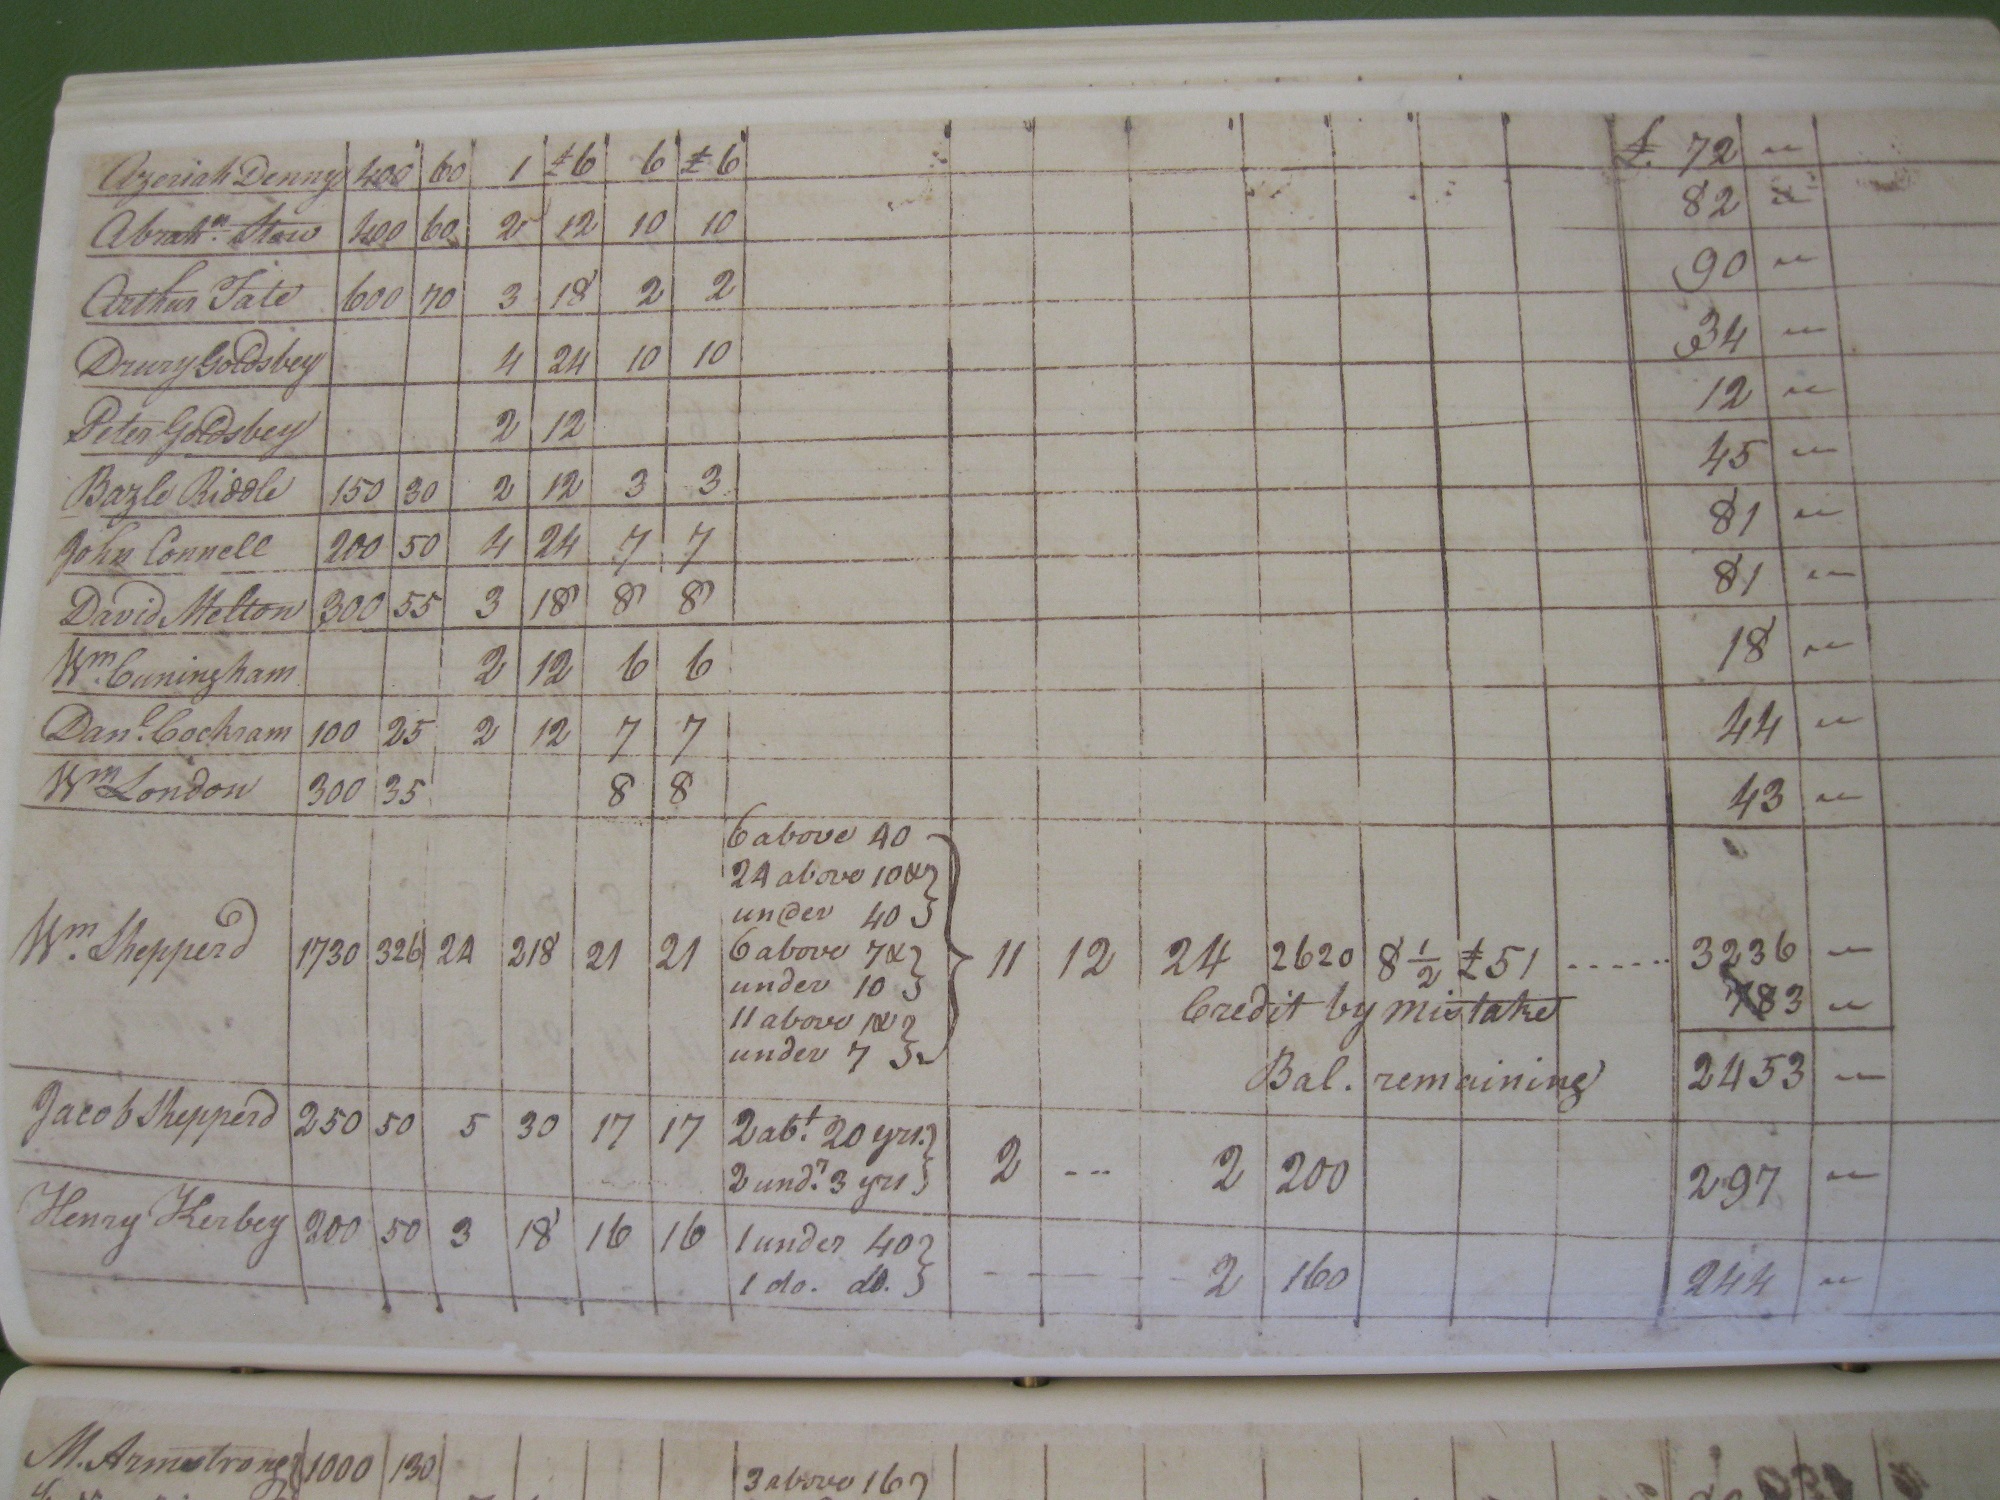 Azeriah Denny 400 60 1 £6 6 £6 £. 72 "
Abrahm. Stow 400 60 2 12 10 10 82 "
Arthur Tate 600 70 3 18 2 2 90 "
Drury Goldsbey 4 24 10 10 34 "
Peter Goldsbey 2 12 12 "
Bazle Riddle 150 30 2 12 3 3 45 "
John Connell 200 50 4 24 7 7 81 "
David Melton 300 55 3 18 8 8 81 "
Wm. Cuningham 2 12 6 6 18 "
Danl. Cochram 100 25 2 12 7 7 44 "
Wm London 300 35 8 8 43 "
6 above 40
24 above 10 &
under 40
Wm. Shepperd 1730 326 24 218 21 21 6 above 7 & 11 12 24 2620 8 1/2 £51 ...... 3236 "
under 10 Credit by mistake 783 "
11 above 1 &
under 7 Bal. remaining 2453 "
Jacob Shepperd 250 50 5 30 17 17 2 abt. 20 yrs. 2 --- 2 200 297 "
2 undr. 3 yrs
Henry Kerbey 200 50 3 18 16 16 1 under 40 2 160 244 "
1 do. do.
M. Armstrong 1000 130 3 above 16